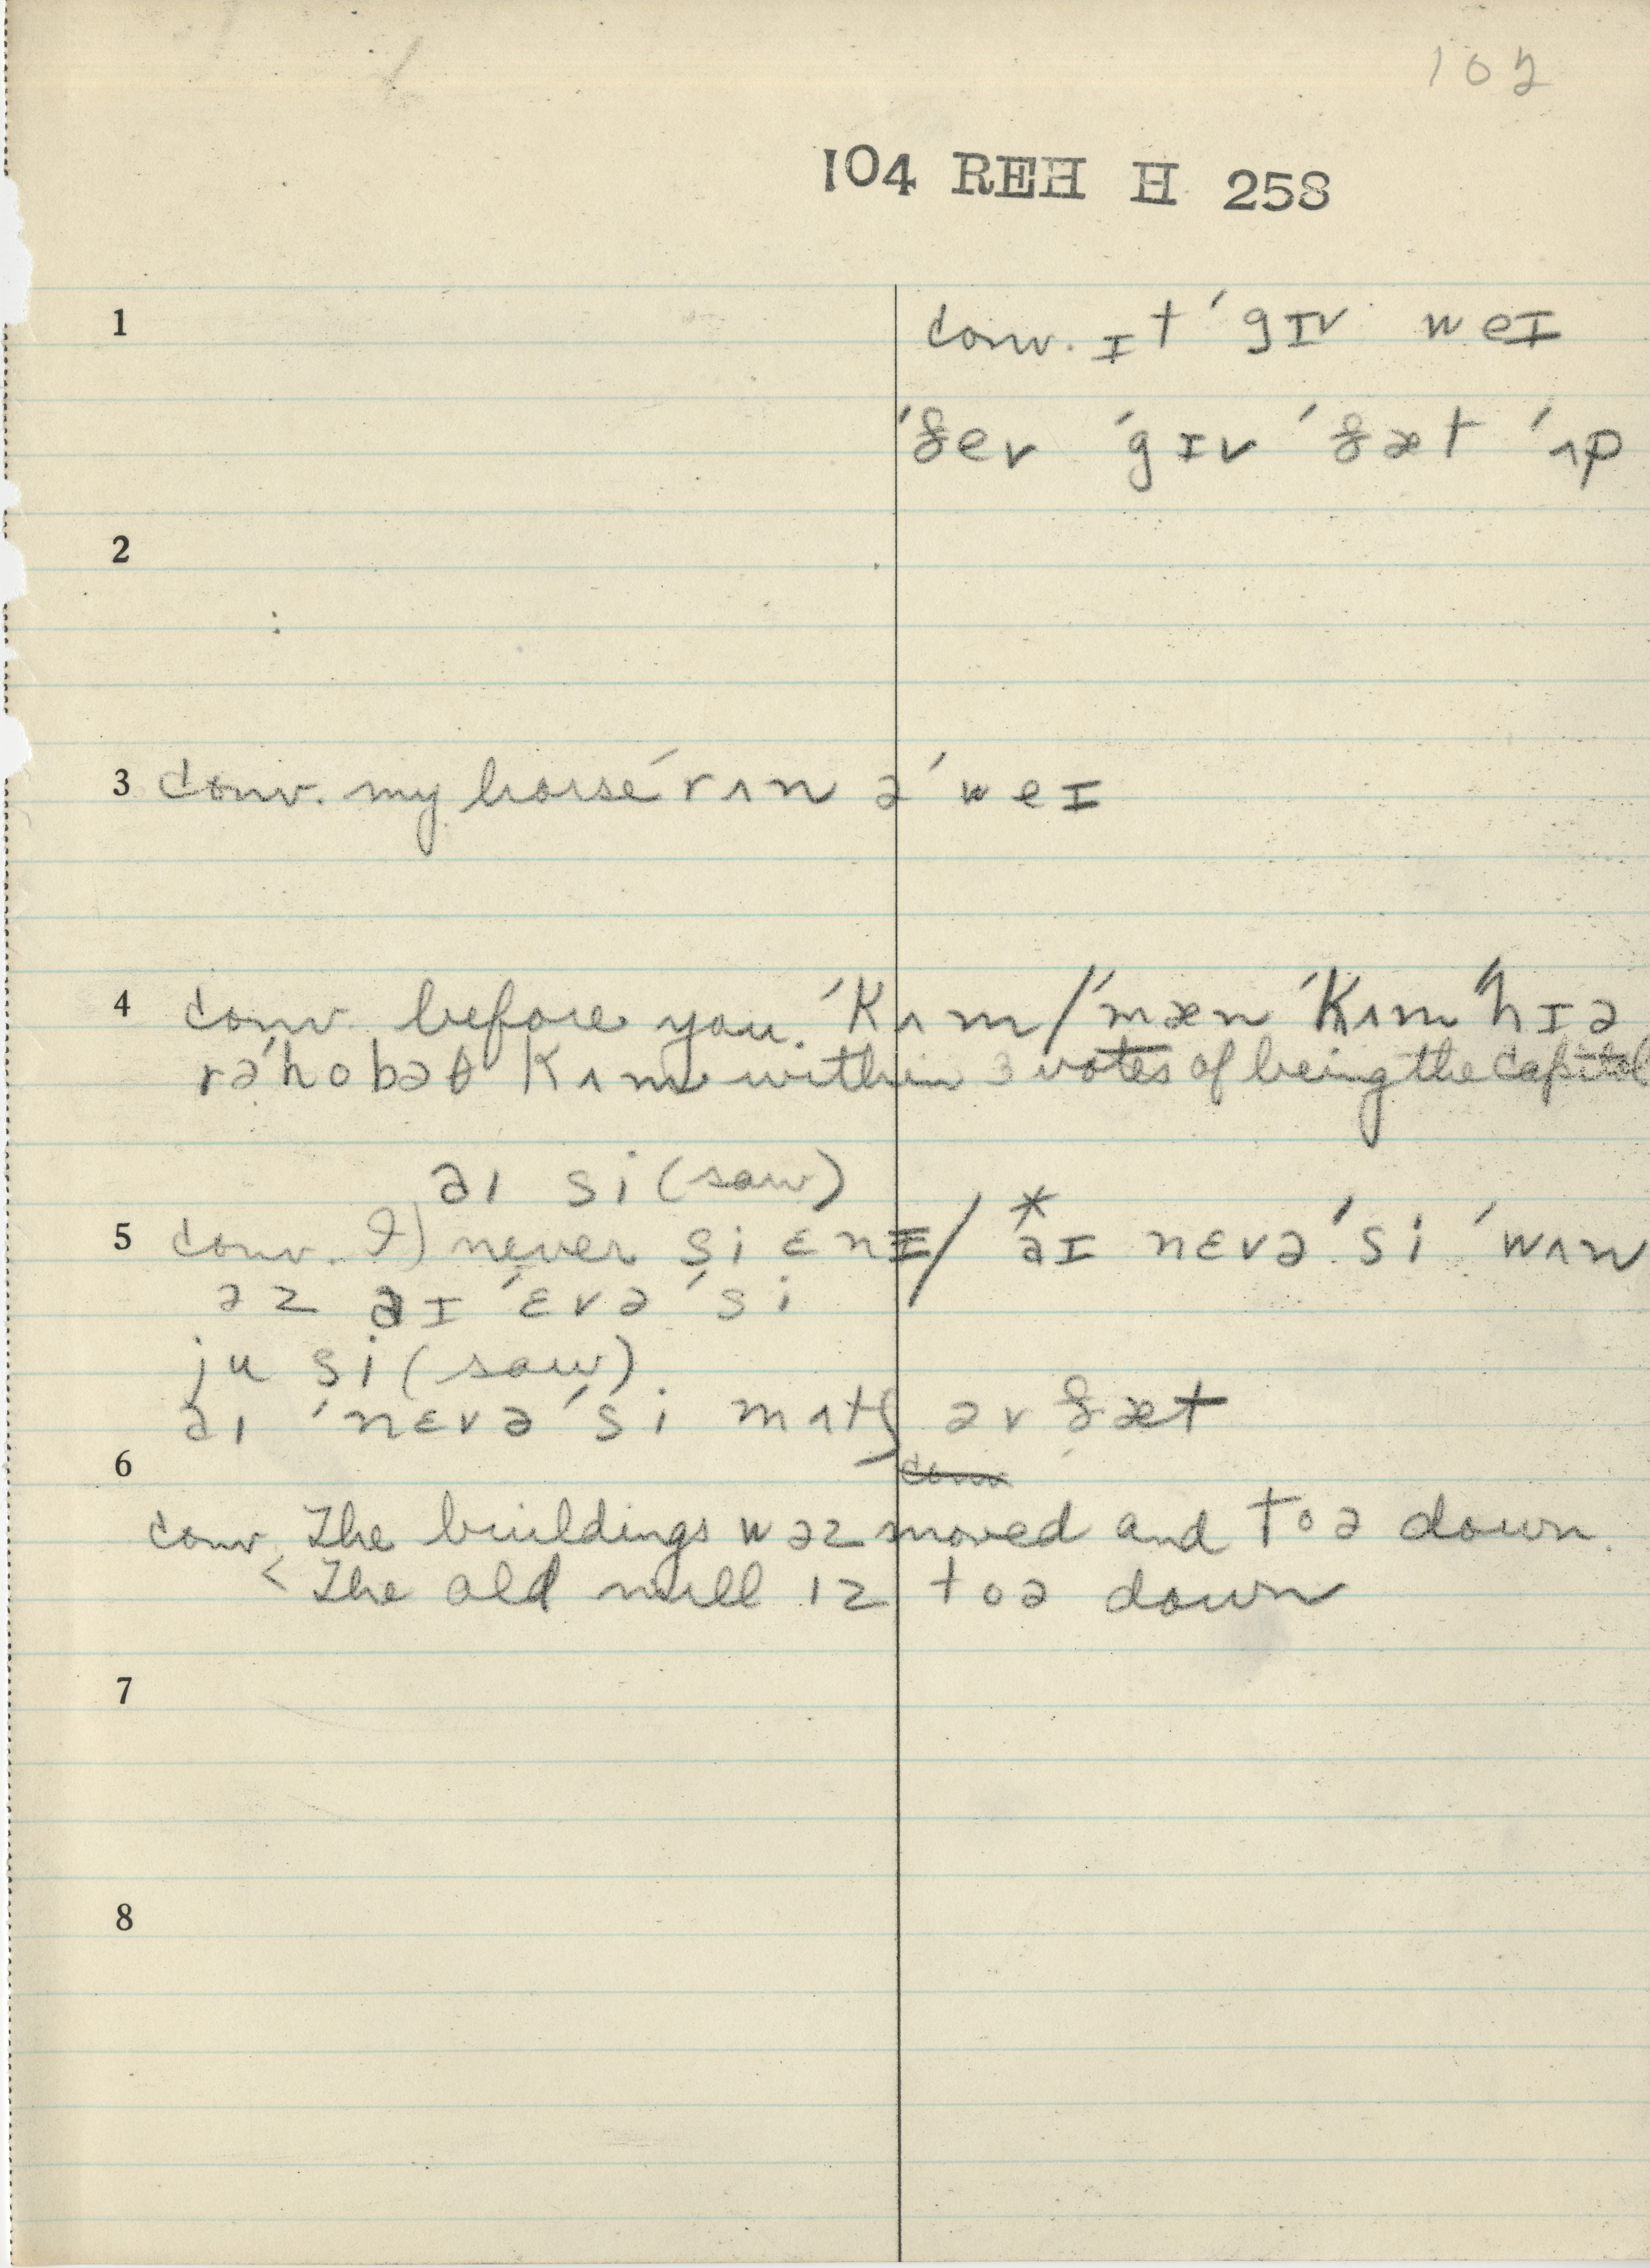 102
104 REH H 258
1 conv. ɪt ˈgɪv weɪ
ˈðev ˈgɪv ˈðæt ˈʌp
2
3 conv. my horse ˈrʌn əˈweɪ
4 conv. before you. ˈkʌm / ˈmæn ˈkʌm ˈhɪə
rəˈhobəθ kʌm within 3 votes of being the capitol
aɪ si (saw)
5 conv. I) never si ɛnɪ / * aɪ nɛvə ˈsi ˈwʌn
əz aɪ ˈɛvə ˈsi
ju si (saw)
aɪ ˈnɛvə ˈsi mʌtʃ əv ðæt
6 conv
conv. The buildings wəz moved and toə down.
< The old mill ɪz toə down
7
8